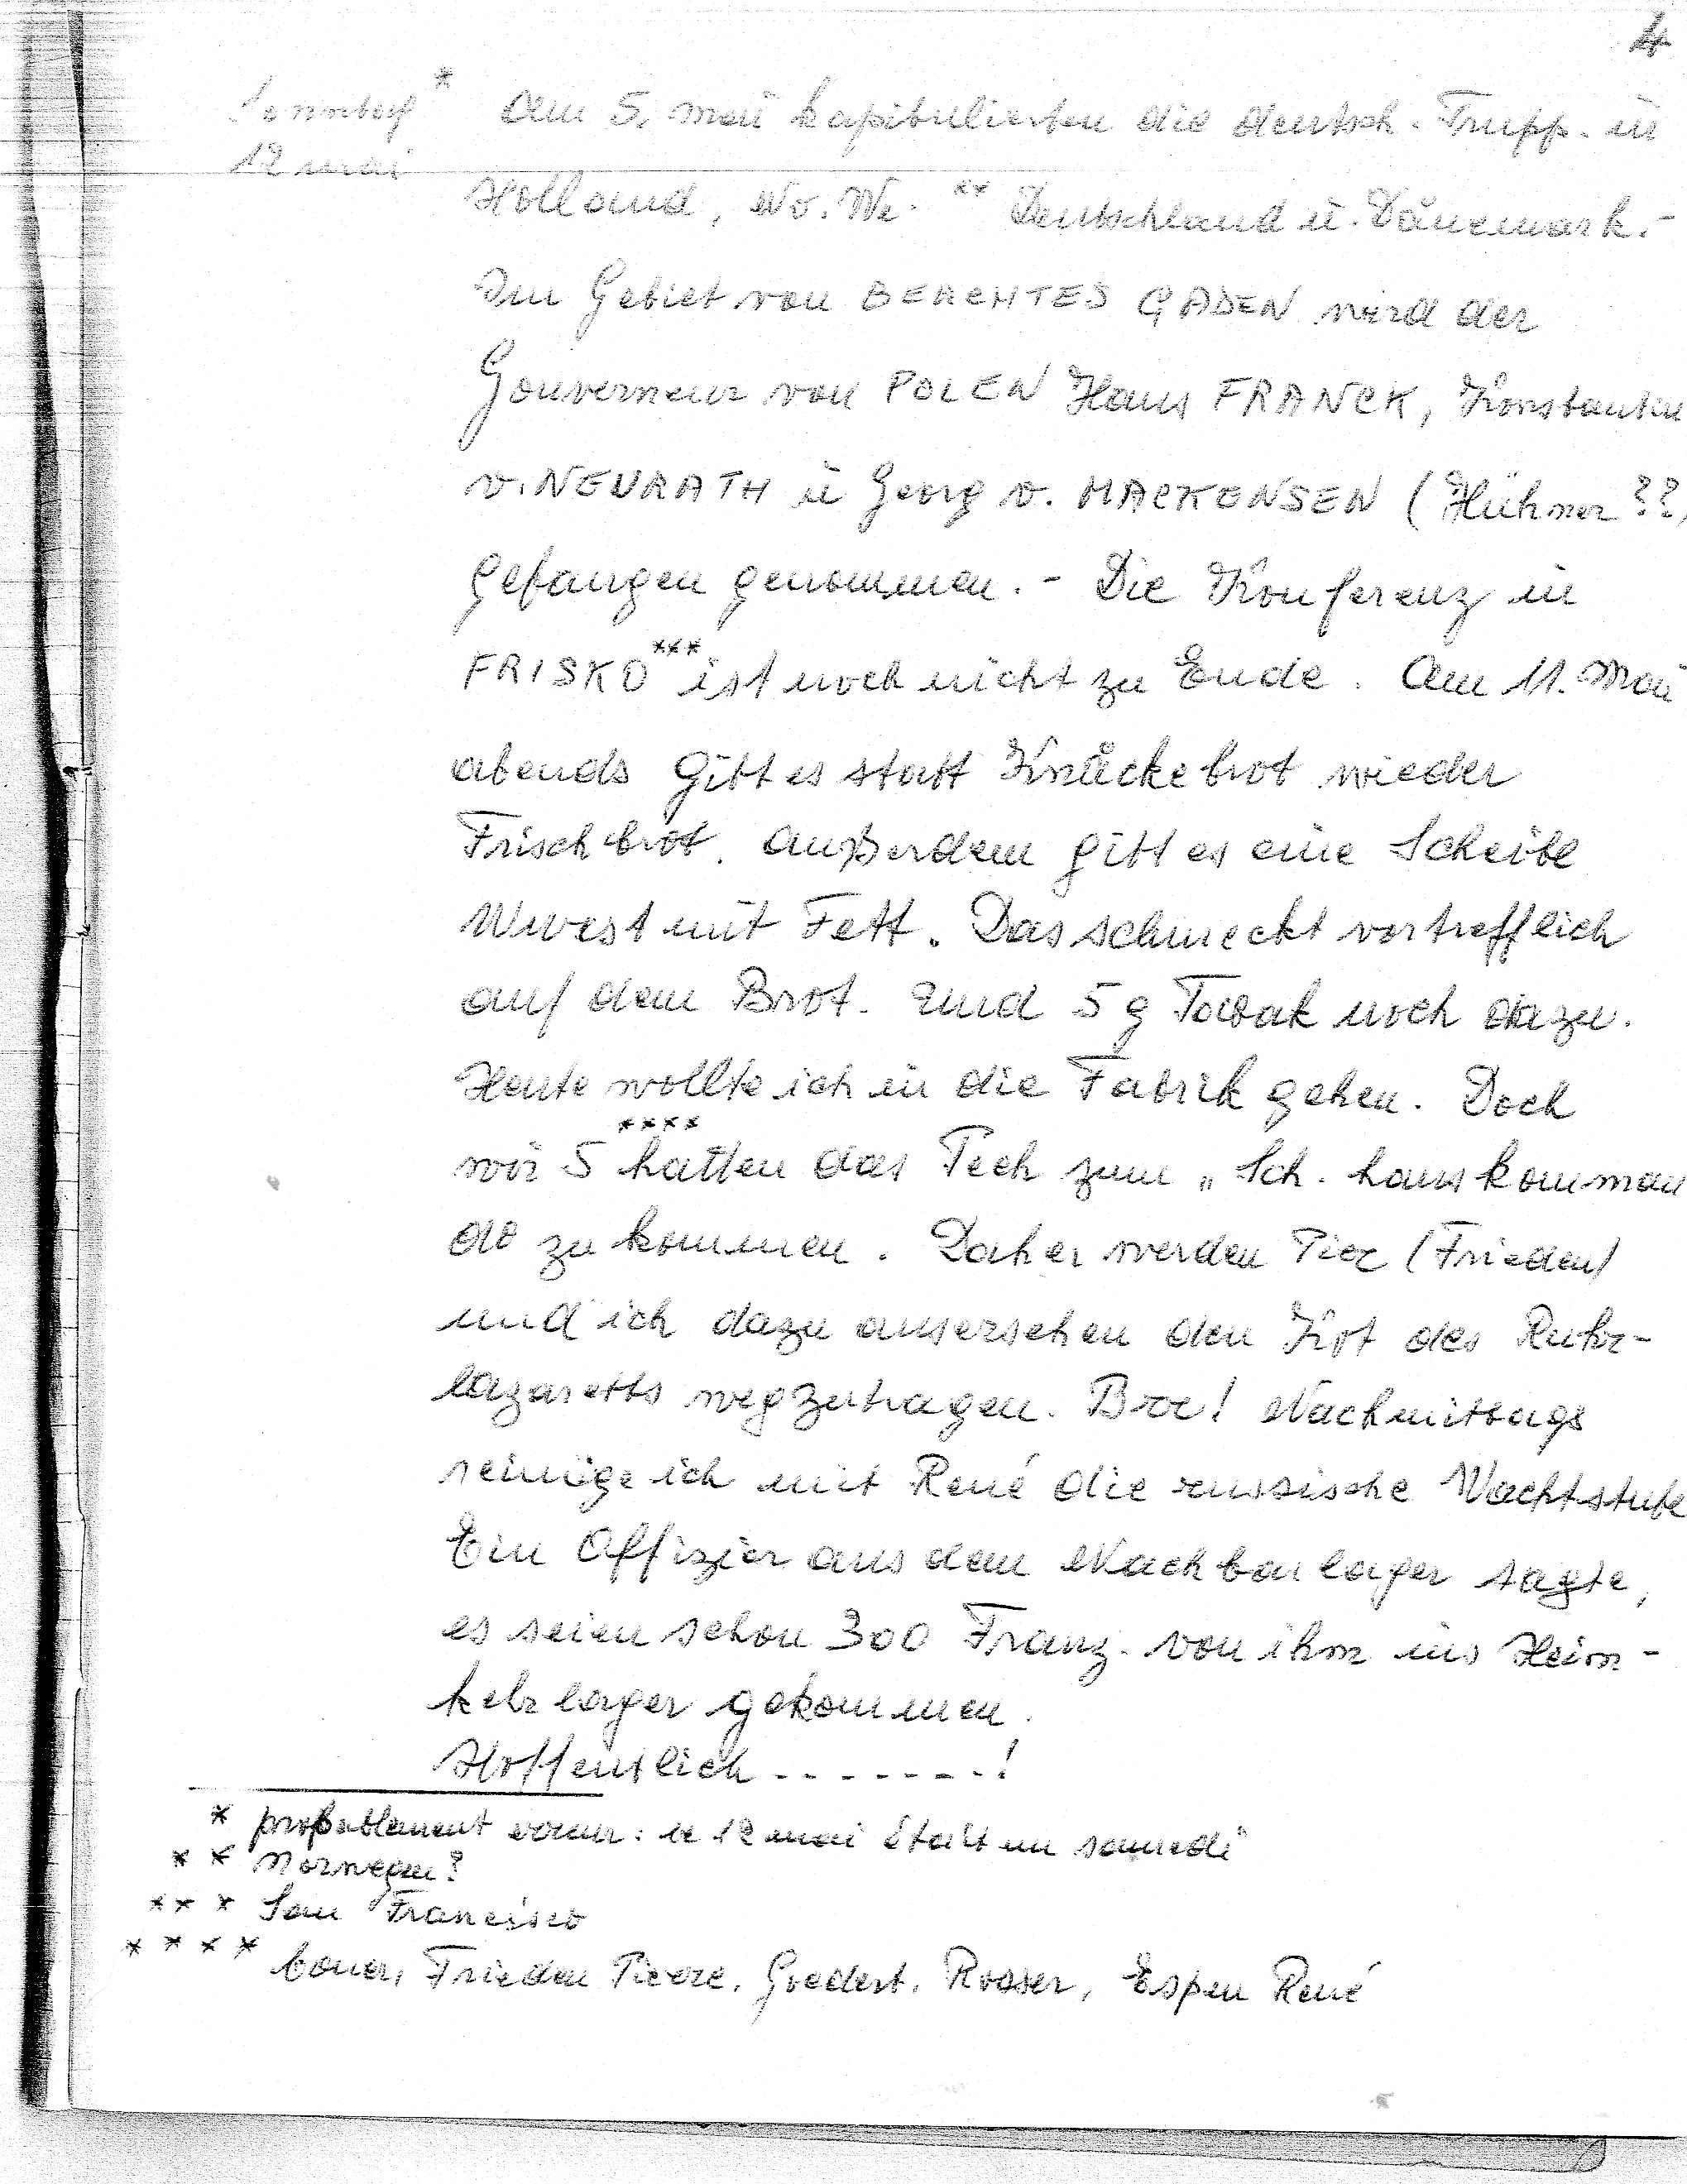 4
Sonntag * Am 5. Mai kapitulierten die deutsch. Trupp. in
12 mai
Holland, No. We. ** Deutschland u. Dänemark. -
Im Gebiet von BERCHTES GADEN wird der
Gouverneur von POLEN Hans FRANCK, Konstantin
v. NEURATH u Georg v. MACKENSEN (Hühner ??)
gefangen genommen. - Die Konferenz in
FRISKO *** ist noch nicht zu Ende. Am 11. Mai
abends gibt es statt Knäckebrot wieder
Frischbrot. Außerdem gibt es eine Scheibe
Wurst mit Fett. Das schmeckt vortrefflich
auf dem Brot. Und 5 g Tabak noch dazu.
Heute wollte ich in die Fabrik gehen. Doch
wir 5 **** hatten das Pech zum „Sch. hauskomman
do zu kommen. Daher werden Pier (Frieden)
und ich dazu ausersehen den Kot des Ruhr-
lazaretts wegzutragen. Brr! Nachmittags
reinige ich mit René die russische Wachtstube
Ein Offizier aus dem Nachbarlager sagte,
es seien schon 300 Franz. von ihm ins Heim-
kehrlager gekommen.
Hoffentlich - - - - - - - !
* probablement erreur: le 12 mai était un samedi
** Norwegen?
*** San Francisco
**** Frieden Pierre, Goedert, Rosser, Espen René